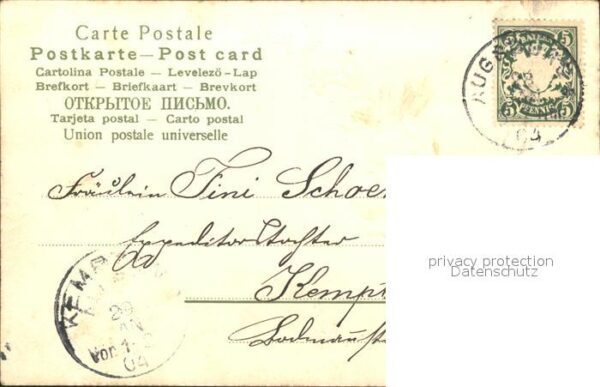 Carte Postale
Postkarte — Post card
Cartolina Postale — Levelező-Lap
Brefkort — Briefkaart — Brevkort
ОТКРЫТОЕ ПИСЬМО.
Tarjeta postal — Carto postal
Union postale universelle
5 5
5 5
AUGS
04
Fräulein Tini Schoe
Expeditorstochter
Kempt
KEMP
Vor. 1
04
privacy protection
Datenschutz